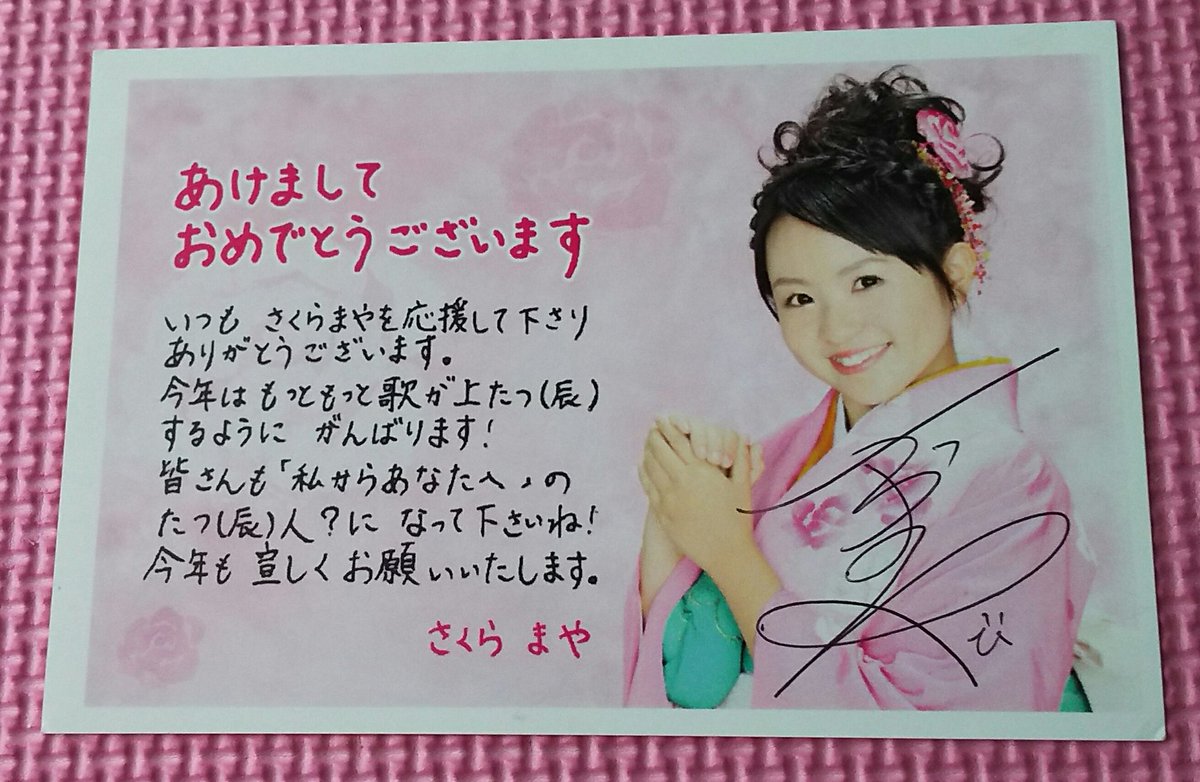 あけまして
おめでとうございます
いつも さくらまやを応援して下さり
ありがとうございます。
今年は もっともっと歌が上たつ(辰)
するように がんばります!
皆さんも「私からあなたへ」の
たつ(辰)人?に なって下さいね!
今年も 宜しくお願いいたします。
さくら まや